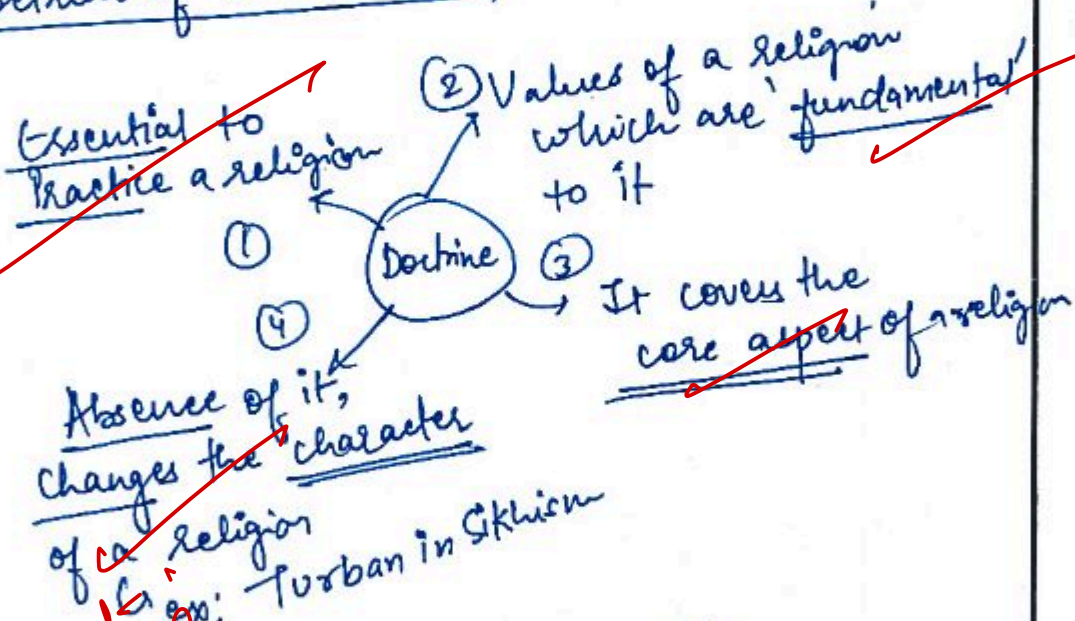 Essential to
Practice a religion
①
② Values of a religion
which are 'fundamental'
to it
Doctrine
③ It covers the
core aspect of a religion
④
Absence of it,
changes the 'character
of a religion
ex: Turban in Sikhism